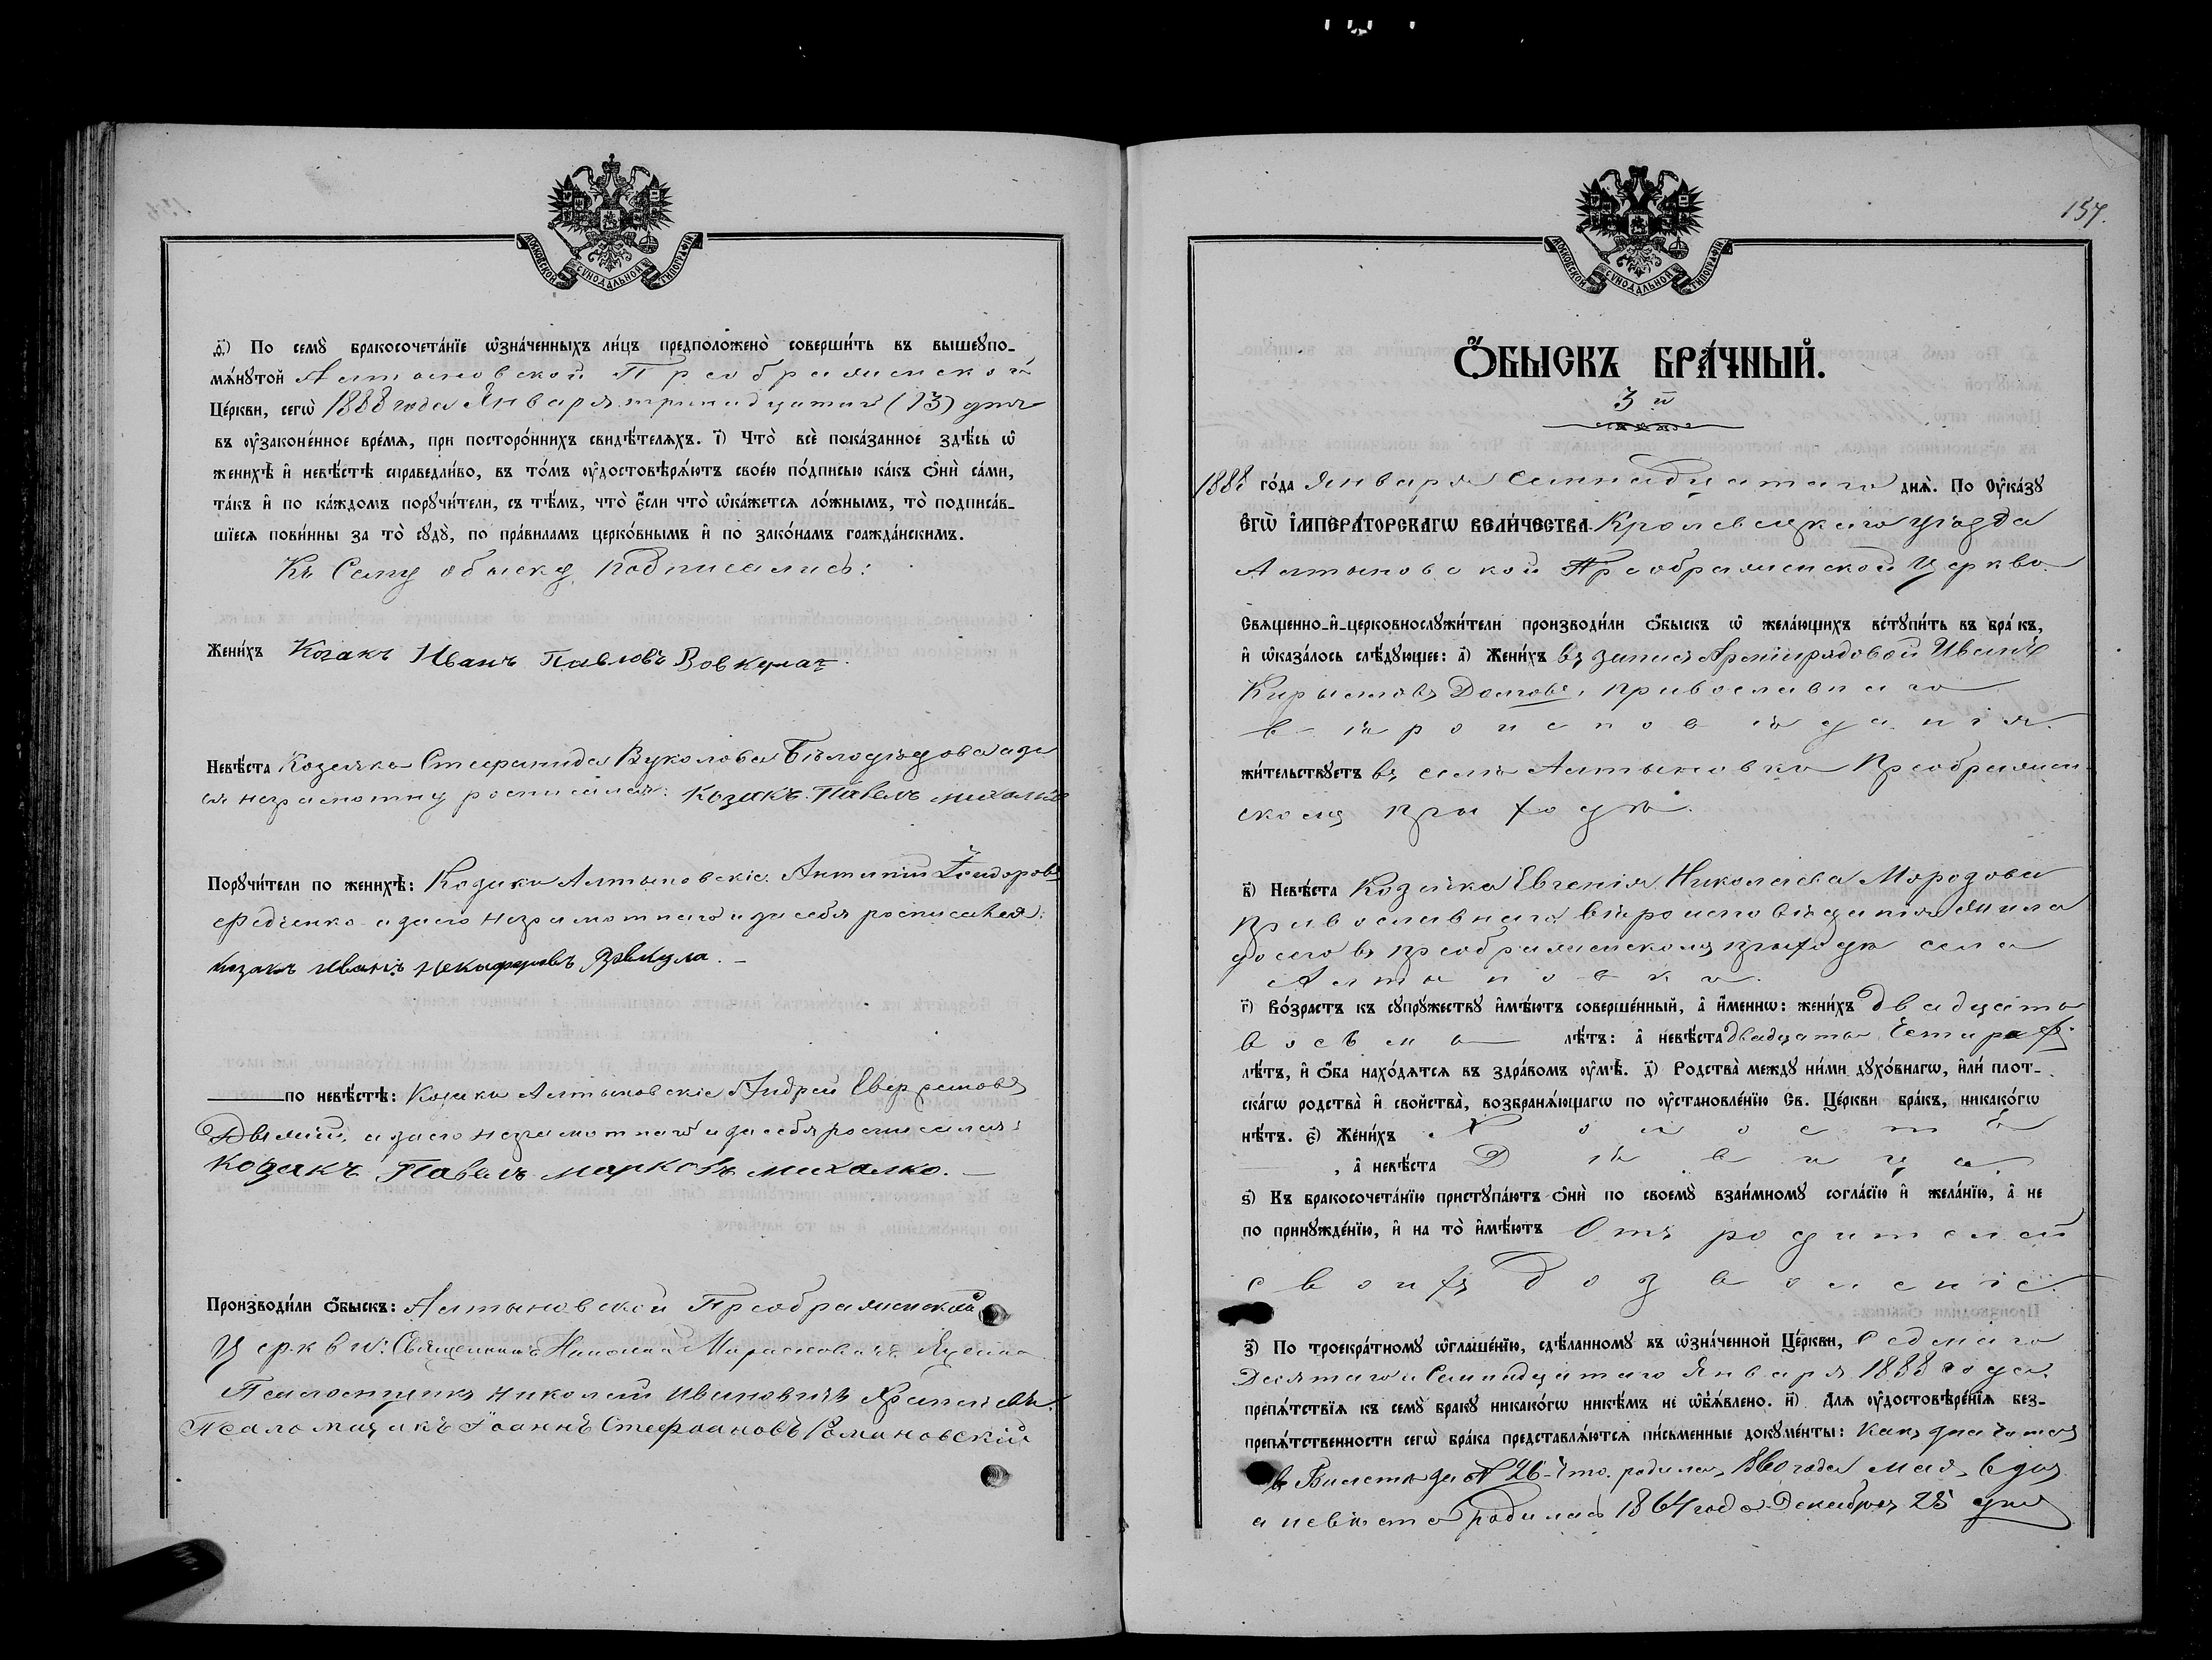 МОСКОВСКОЙ СѴНОДАЛЬНОЙ ТИПОГРАФІИ
ѳ҃) По семꙋ̀ бракосочета́нїе ѡ҆зна́ченныхъ ли́цъ предположено̀ соверши́ть въ вышеꙋпо-
мѧ́нꙋтой Алтыновской Преображенской
Це́ркви, сегѡ̀ 1888 года Января тринадцатаго (13) дня
въ ᲂу҆законе́нное вре́мѧ, при посторо́ннихъ свидѣ́телѧхъ. і҃) Что̀ всѐ пока́занное здѣ́сь ѡ҆
женихѣ̀ и҆ невѣ́стѣ справедли́во, въ то́мъ ᲂу҆достовѣрѧ́ютъ свое́ю по́дписью ка́къ ѻ҆нѝ са́ми,
та́къ и҆ по ка́ждомъ порꙋчи́тели, съ тѣ́мъ, что̀ є҆́сли что̀ ѡ҆ка́жетсѧ ло́жнымъ, то̀ подписа́в-
шїесѧ пови́нны за то̀ сꙋдꙋ̀, по пра́виламъ церко́внымъ и҆ по зако́намъ гражда́нскимъ.
Къ Сему обыску подписались:
Жени́хъ Козакъ Иванъ Павловъ Вовкулат.
Невѣ́ста Козачка Стефанида Вуколова Бѣлодѣдова а за
ея неграмотну росписался: Козакъ Павелъ михалко
Порꙋчи́тели по женихѣ̀: Козаки Алтыновскіе: Антипій Ѳеодоровъ
Федченко а за его неграмотнаго и за себя росписался:
козакъ Иванъ Никифоровъ Вовкула. —
по невѣ́стѣ: Козаки Алтыновскіе Андрей Евфремовъ
а за его неграмотнаго и за себя росписался:
Козакъ Павелъ Марковъ михалко. —
Производи́ли ѻ҆́быскъ: Алтыновской Преображенской
Церкви: Священникъ Николай
Псаломщикъ Николай Ивановичъ
Псаломщикъ Іоаннъ Стефановъ Романовскій
157.
МОСКОВСКОЙ СѴНОДАЛЬНОЙ ТИПОГРАФІИ
Ѻ҆́БЫСКЪ БРА́ЧНЫЙ.
3 й
1888 го́да Января Семнадцатаго днѧ̀. По Оу҆ка́зꙋ
Є҆ГѠ̀ І҆МПЕРА́ТОРСКАГѠ ВЕЛИ́ЧЕСТВА Кролевецкаго уѣзда
Алтыновской Преображенской Церкви
Свѧще́нно-и҆-церковнослꙋжи́тели производи́ли ѻ҆́быскъ ѡ҆ жела́ющихъ встꙋпи́ть въ бра́къ,
и҆ ѡ҆каза́лось слѣ́дꙋющее: а҃) Жени́хъ въ запасѣ Арміи рядовой Иванъ
Кириловъ Долговъ, православнаго
вѣроисповѣданія.
жи́тельствꙋетъ въ селѣ Алтыновкѣ Преображен-
скому приходѣ.
в҃) Невѣ́ста Козачка Евгенія Николаева Морозова
православнаго вѣроисповѣданія жила
до сего въ Преображенскому приходѣ села
Алтыновки.
г҃) Во́зрастъ къ сꙋпрꙋ́жествꙋ и҆мѣ́ютъ соверше́нный, а҆ и҆́меннѡ: жени́хъ двадцать
восьмь лѣ́тъ: а҆ невѣ́ста двадцать Четирех
лѣ́тъ, и҆ ѻ҆́ба нахо́дѧтсѧ въ здра́вомъ ᲂу҆мѣ̀. д҃) Родства̀ междꙋ ни́ми дꙋхо́внагѡ, и҆лѝ плот-
ска́гѡ родства̀ и҆ сво́йства̀, возбранѧ́ющагѡ по ᲂу҆становле́нїю Св. Це́ркви бра́къ, никако́гѡ
нѣ́тъ. є҃) Жени́хъ Холостъ
, а҆ невѣ́ста Дѣвица.
ѕ҃) Къ бракосочета́нїю пристꙋпа́ютъ ѻ҆нѝ по своемꙋ̀ взаи́мномꙋ согла́сїю и҆ жела́нїю, а҆ не
по принꙋжде́нїю, и҆ на то̀ и҆мѣ́ютъ Отъ родителей
своихъ дозволеніе.
з҃) По троекра́тномꙋ ѡ҆глаше́нїю, сдѣ́ланномꙋ въ ѡ҆зна́ченной Це́ркви, Седмаго
Десятаго и Семнадцатаго Января 1888 года.
препѧ́тствїѧ къ семꙋ̀ бра́кꙋ никако́гѡ никѣ́мъ не ѡ҆б̾ѧ́влено. и҃) Длѧ ᲂу҆достовѣре́нїѧ без-
препѧ́тственности сегѡ̀ бра́ка представлѧ́ютсѧ пи́сьменные докꙋме́нты: Какъ значится
въ Билетѣ за № 26-й что родился 1860 года мая 6 дня
а невѣста родилась 1864 года Декабря 25 дня